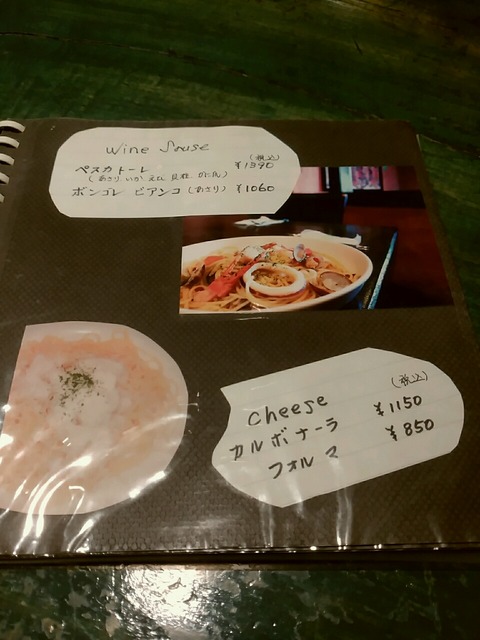 Wine Souse
(税込)
ペスカトーレ ¥1390
(あさり いか えび 貝柱
ボンゴレ ビアンコ (あさり) ¥1060
Cheese (税込)
カルボナーラ ¥1150
フォルマ ¥850